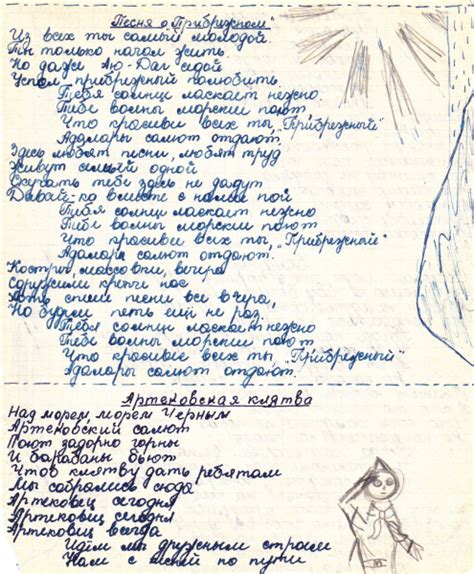 Песня о „Прибрежном"
Из всех ты самый молодой.
Ты только начал жить
Но даже Аю-Даг седой
Успел прибрежный полюбить
Тебя солнце ласкает нежно
Тебе волны морские поют
Что красивей всех ты, „Прибрежный"
Адалары салют отдают.
Здесь любят песни, любят труд
Живут семьёй одной
Скучать тебе здесь не дадут
Давай-ка вместе с нами пой
Тебя солнце ласкает нежно
Тебе волны морские поют
Что красивей всех ты, „Прибрежный"
Адалары салют отдают.
Костры, массовки, вечера
Сдружили крепче нас
Хоть спели песни все вчера,
Но будем петь ещё не раз.
Тебя солнце ласкает нежно
Тебе волны морские поют
Что красивые всех ты „Прибрежный"
Адалары салют отдают.
Артековская клятва
Над морем, морем Чёрным
Артековский салют
Поют задорно горны
И барабаны бьют
Чтоб клятву дать ребятам
Мы собрались сюда
Артековец сегодня
Артековец сегодня
Артековец всегда
Идём мы дружным строем
Нам с тобой по пути